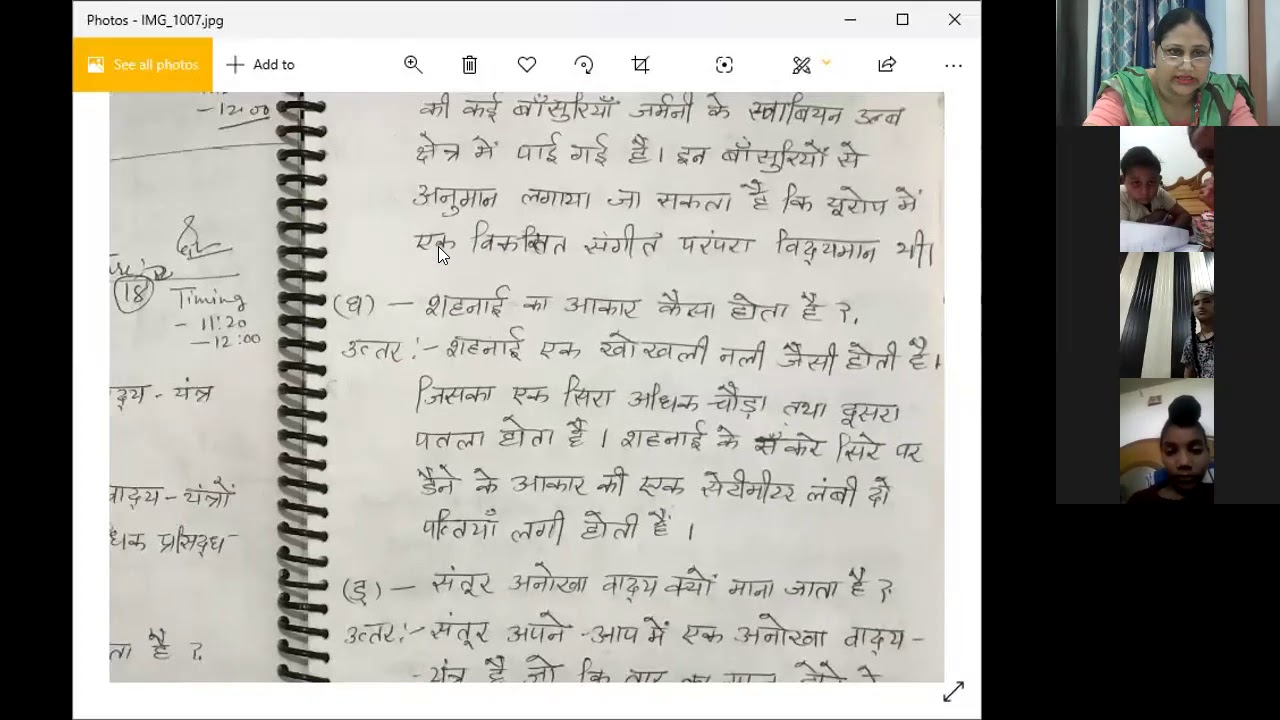 Photos - IMG_1007.jpg
See all photos
Add to
-12:00
की कई बाँसुरियाँ जर्मनी के स्वाबियन उल्ब
क्षेत्र में पाई गई हैं। इन बाँसुरियों से
अनुमान लगाया जा सकता है कि यूरोप में
एक विकसित संगीत परंपरा विद्यमान थी।
18
Timing
- 11:20
- 12:00
(घ) - शहनाई का आकार कैसा होता है ?
उत्तर :- शहनाई एक खोखली नली जैसी होती है।
जिसका एक सिरा अधिक चौड़ा तथा दूसरा
पतला होता है । शहनाई के सँकरे सिरे पर
डैने के आकार की एक सेंटीमीटर लंबी दो
पत्तियाँ लगी होती हैं ।
द्य - यंत्र
वाद्य - यंत्रों
धक प्रसिद्ध-
ता है ?
(ङ) - संतूर अनोखा वाद्य क्यों माना जाता है ?
उत्तर :- संतूर अपने - आप में एक अनोखा वाद्य -
- यंत्र है जो कि तार का